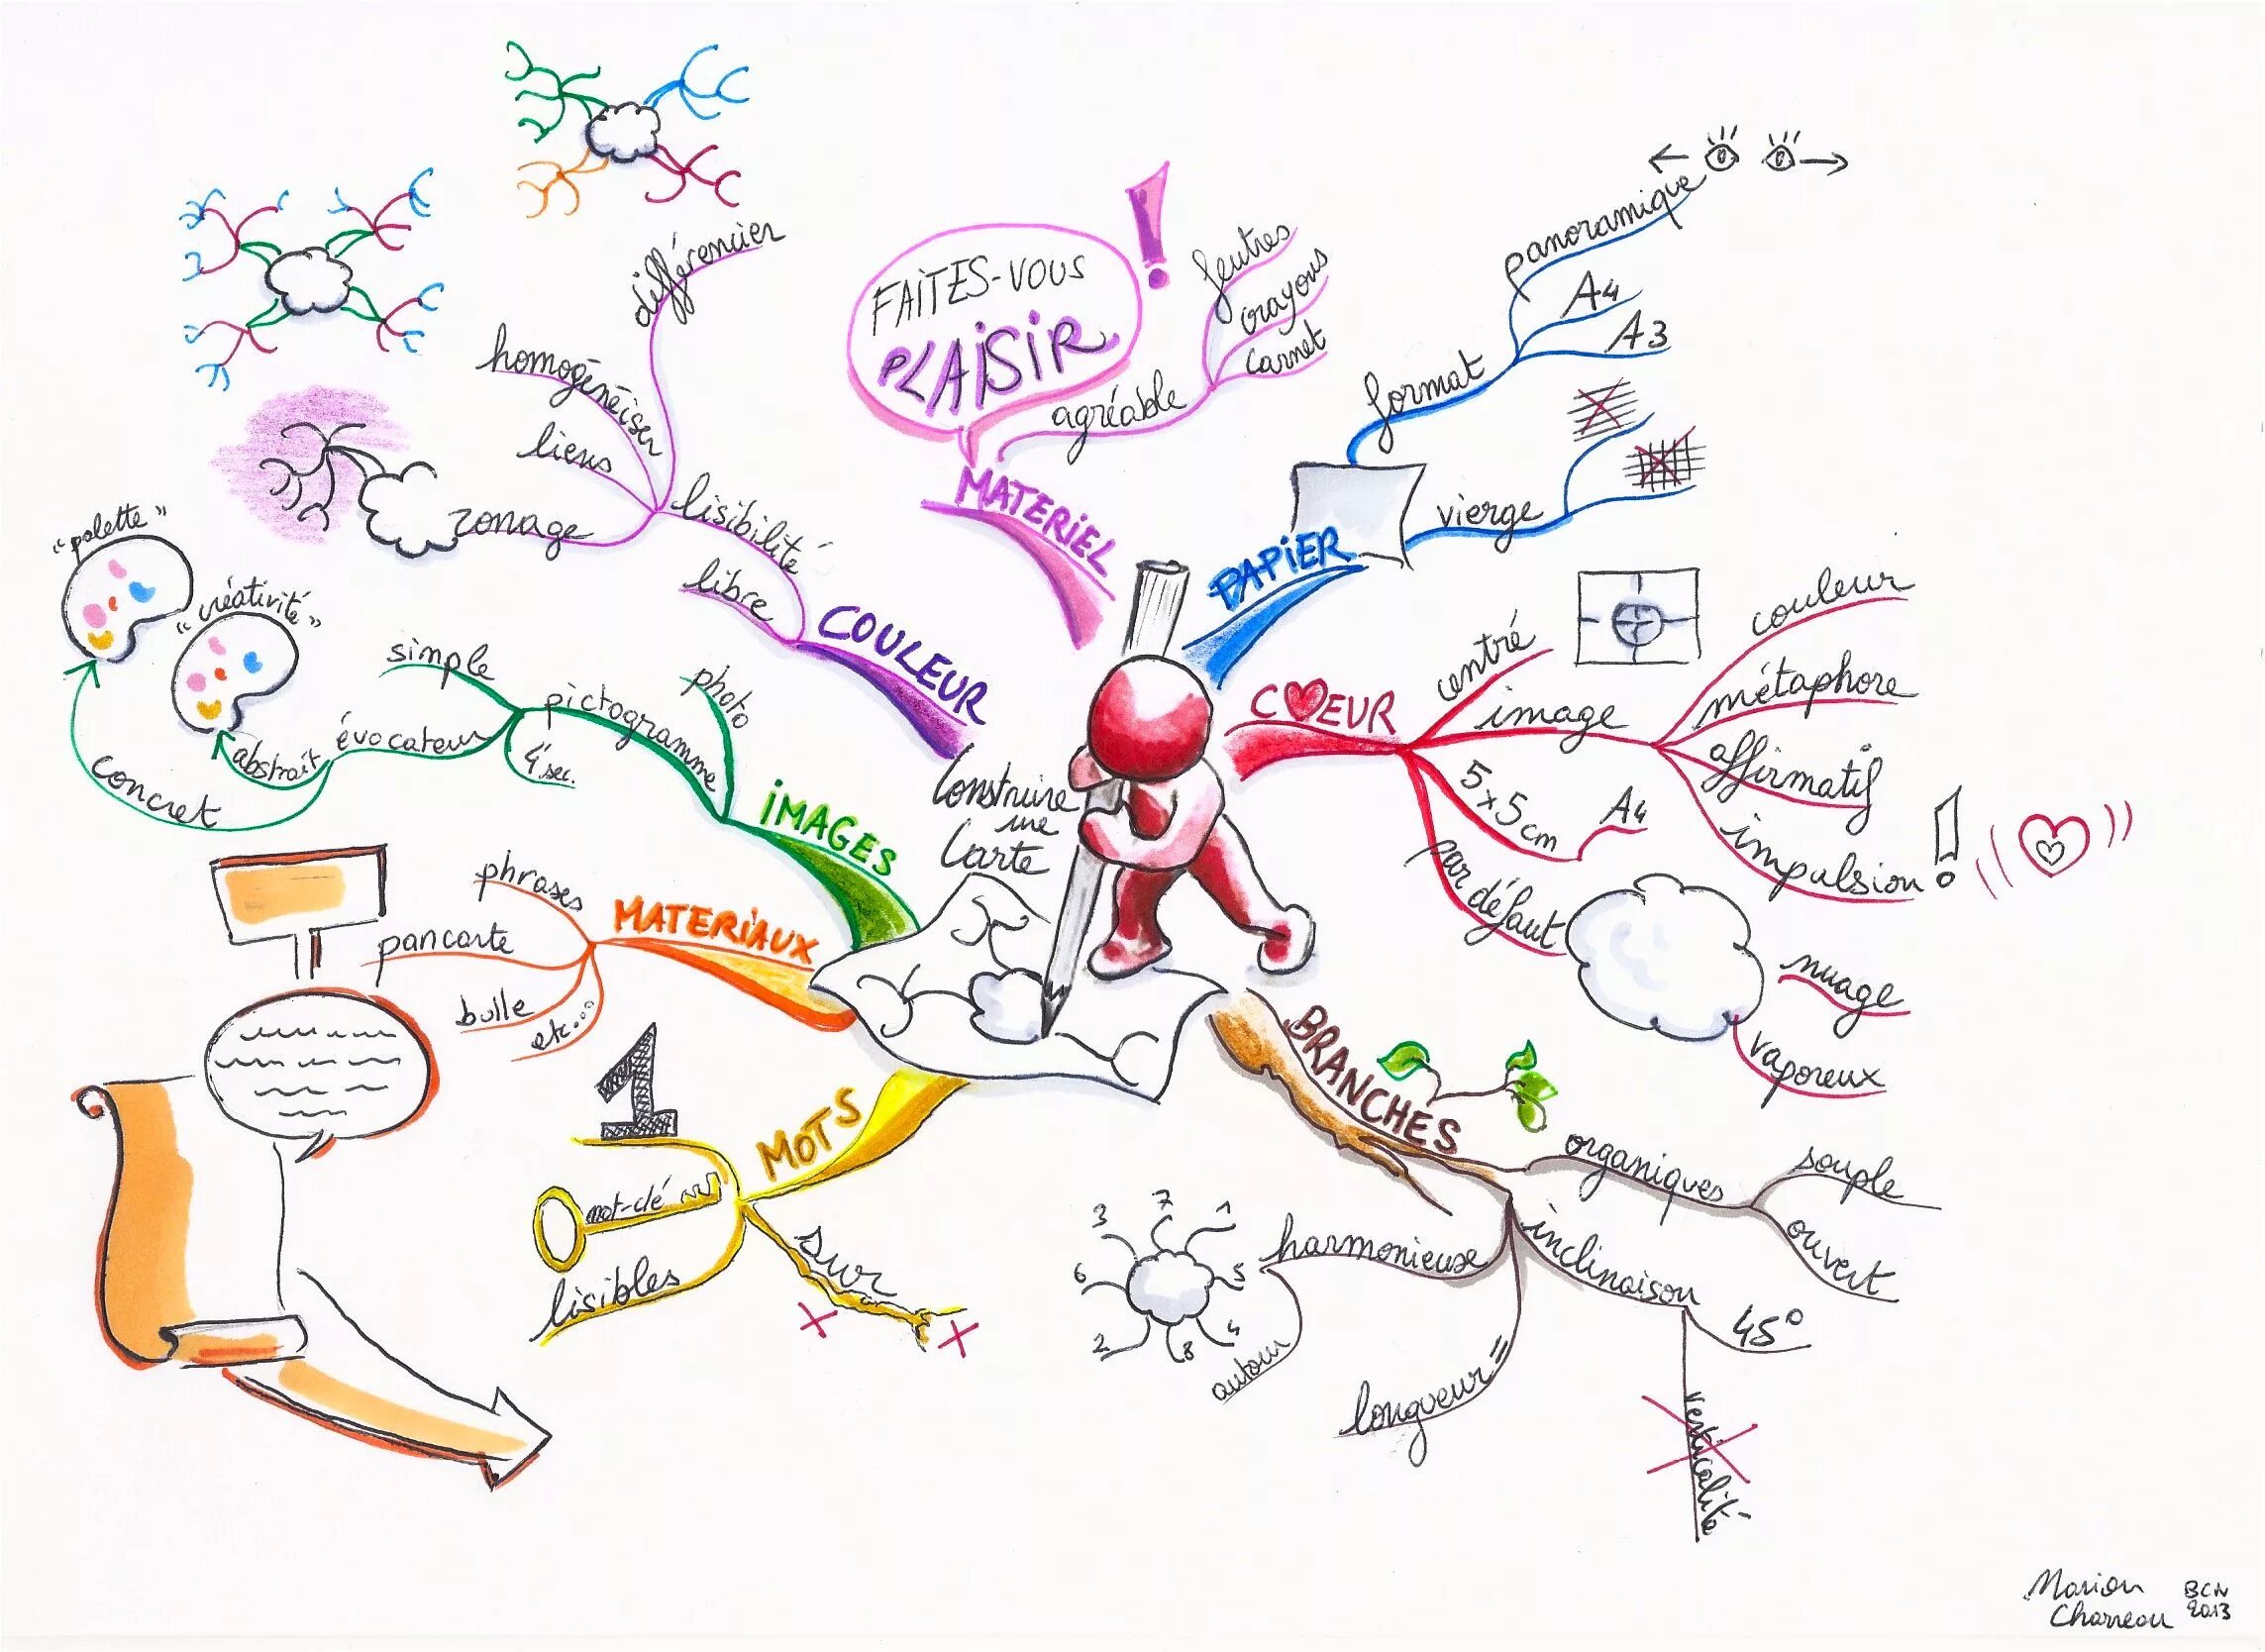 Construire
une
Carte
PAPIER
format
panoramique
A4
A3
vierge
CŒUR
centré
image
couleur
métaphore
affirmatif
impulsion !
5x5cm
A4
par défaut
nuage
vaporeux
BRANCHES
organiques
souple
ouvert
inclinaison
45°
verticalité
longueur =
harmonieuse
autour
3
7
1
6
5
2
8
4
MOTS
1
mot-clé
lisibles
sur
MATERIAUX
phrases
pancarte
bulle
etc...
IMAGES
photo
pictogramme
simple
évocateur
4 sec.
abstrait
concret
"palette"
"créativité"
COULEUR
libre
lisibilité
différencier
homogénéiser
liens
zonage
MATERIEL
agréable
feutres
crayons
carnet
FAITES-VOUS
PLAISIR !
Marion
Charreau
BCN
2013